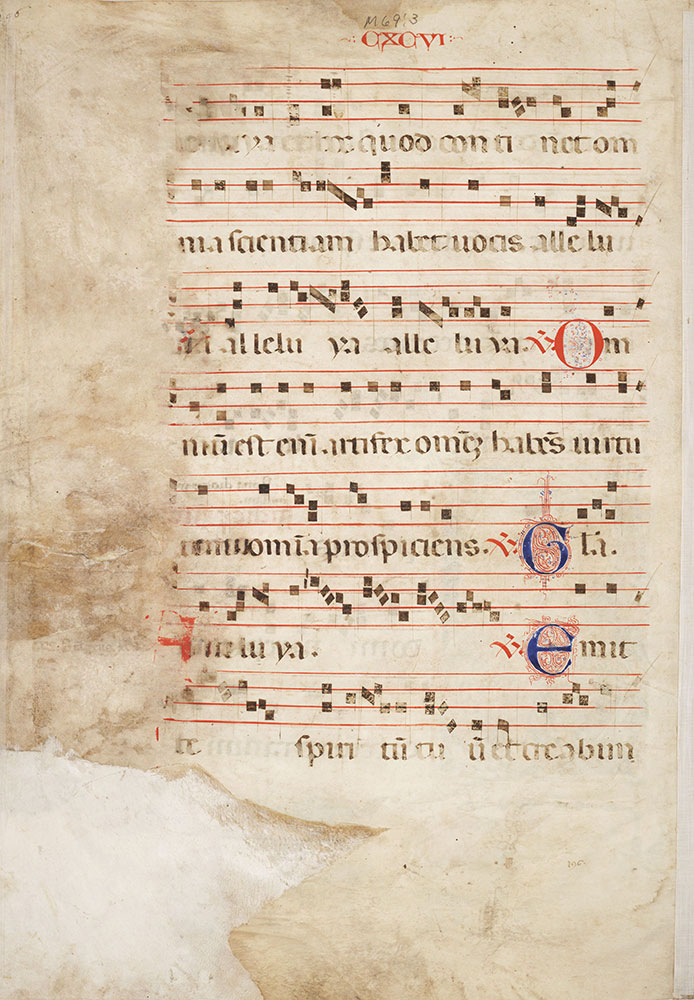 M69:3
CXCVI
ya et hoc quod con ti net om
nia scientiam habet uocis alle lu
ia allelu ya alle lu ya. ℣ Om
niū est eni͂ artifex om̄ēz habe͂s uirtu
tem om̄ia prospiciens. ℣ Gl̄a.
Alle lu ya. ℣ Emit
te spiri tū tu ū et creabun